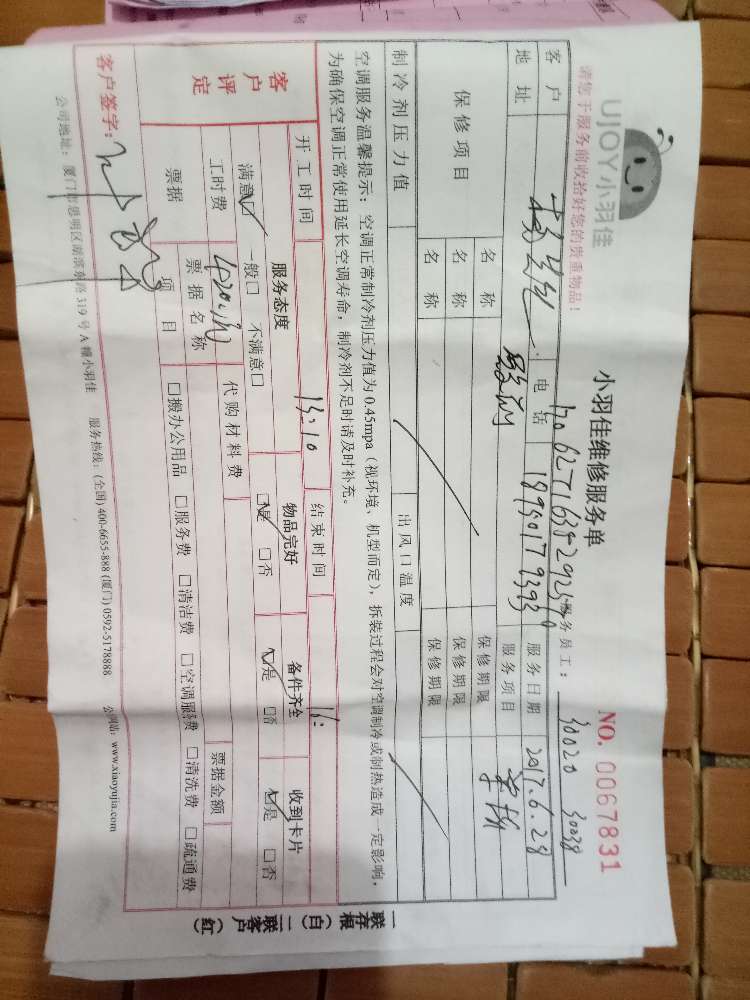 UJOY小羽佳
请您于服务前收拾好您的贵重物品！
小羽佳维修服务单
NO. 0067831
服务员工： 30020 30038
客户 电话 18930179393 服务日期 2017.6.28
地址 服务项目 单拆
保修项目 名称 保修期限
名称 保修期限
名称 保修期限
制冷剂压力值 出风口温度
空调服务温馨提示：空调正常制冷剂压力值为0.45mpa（视环境、机型而定），拆装过程会对空调制冷或制热造成一定影响，
为确保空调正常使用延长空调寿命，制冷剂不足时请及时补充。
开工时间 13:10 结束时间
客户评定 服务态度 物品完好 备件齐全 收到卡片
满意☑ 一般□ 不满意□ ☑是 □否 ☑是 □否 ☑是 □否
工时费 代购材料费 票据金额
票据 票据名称
项目 □搬办公用品 □服务费 □清洁费 □空调服务费 □清洗费 □疏通费
客户签字：
公司地址：厦门市思明区湖滨东路319号A幢小羽佳 服务热线：(全国) 400-6655-888 (厦门) 0592-5178888 公司网站：www.xiaoyujia.com
一联存根（白） 二联客户（红）